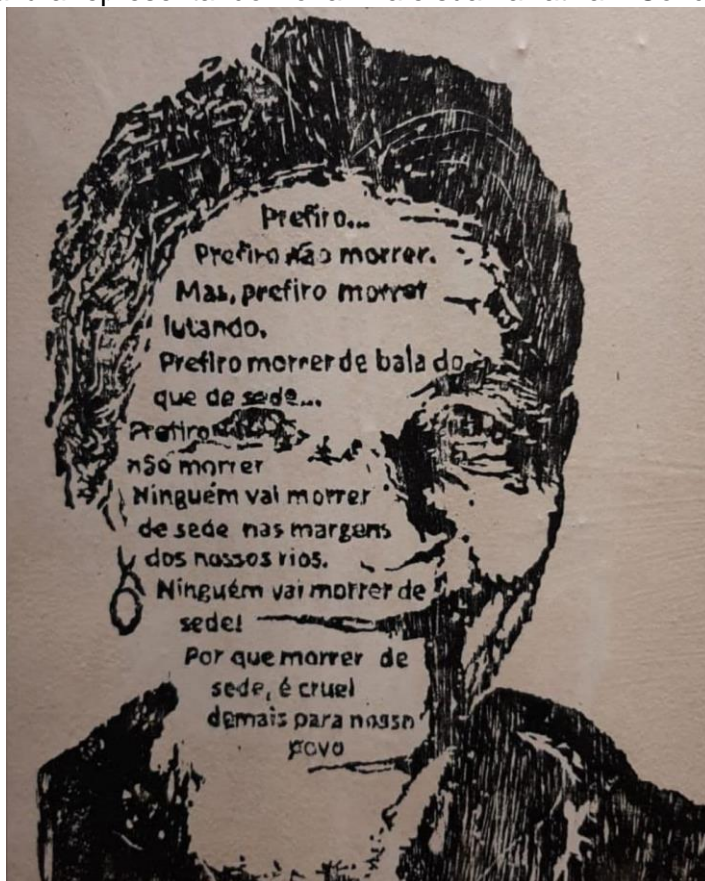 Prefiro...
Prefiro não morrer.
Mas, prefiro morrer
lutando.
Prefiro morrer de bala do
que de sede...
Prefiro
não morrer
Ninguém vai morrer
de sede nas margens
dos nossos rios.
Ninguém vai morrer de
sede!
Por que morrer de
sede, é cruel
demais para nosso
povo